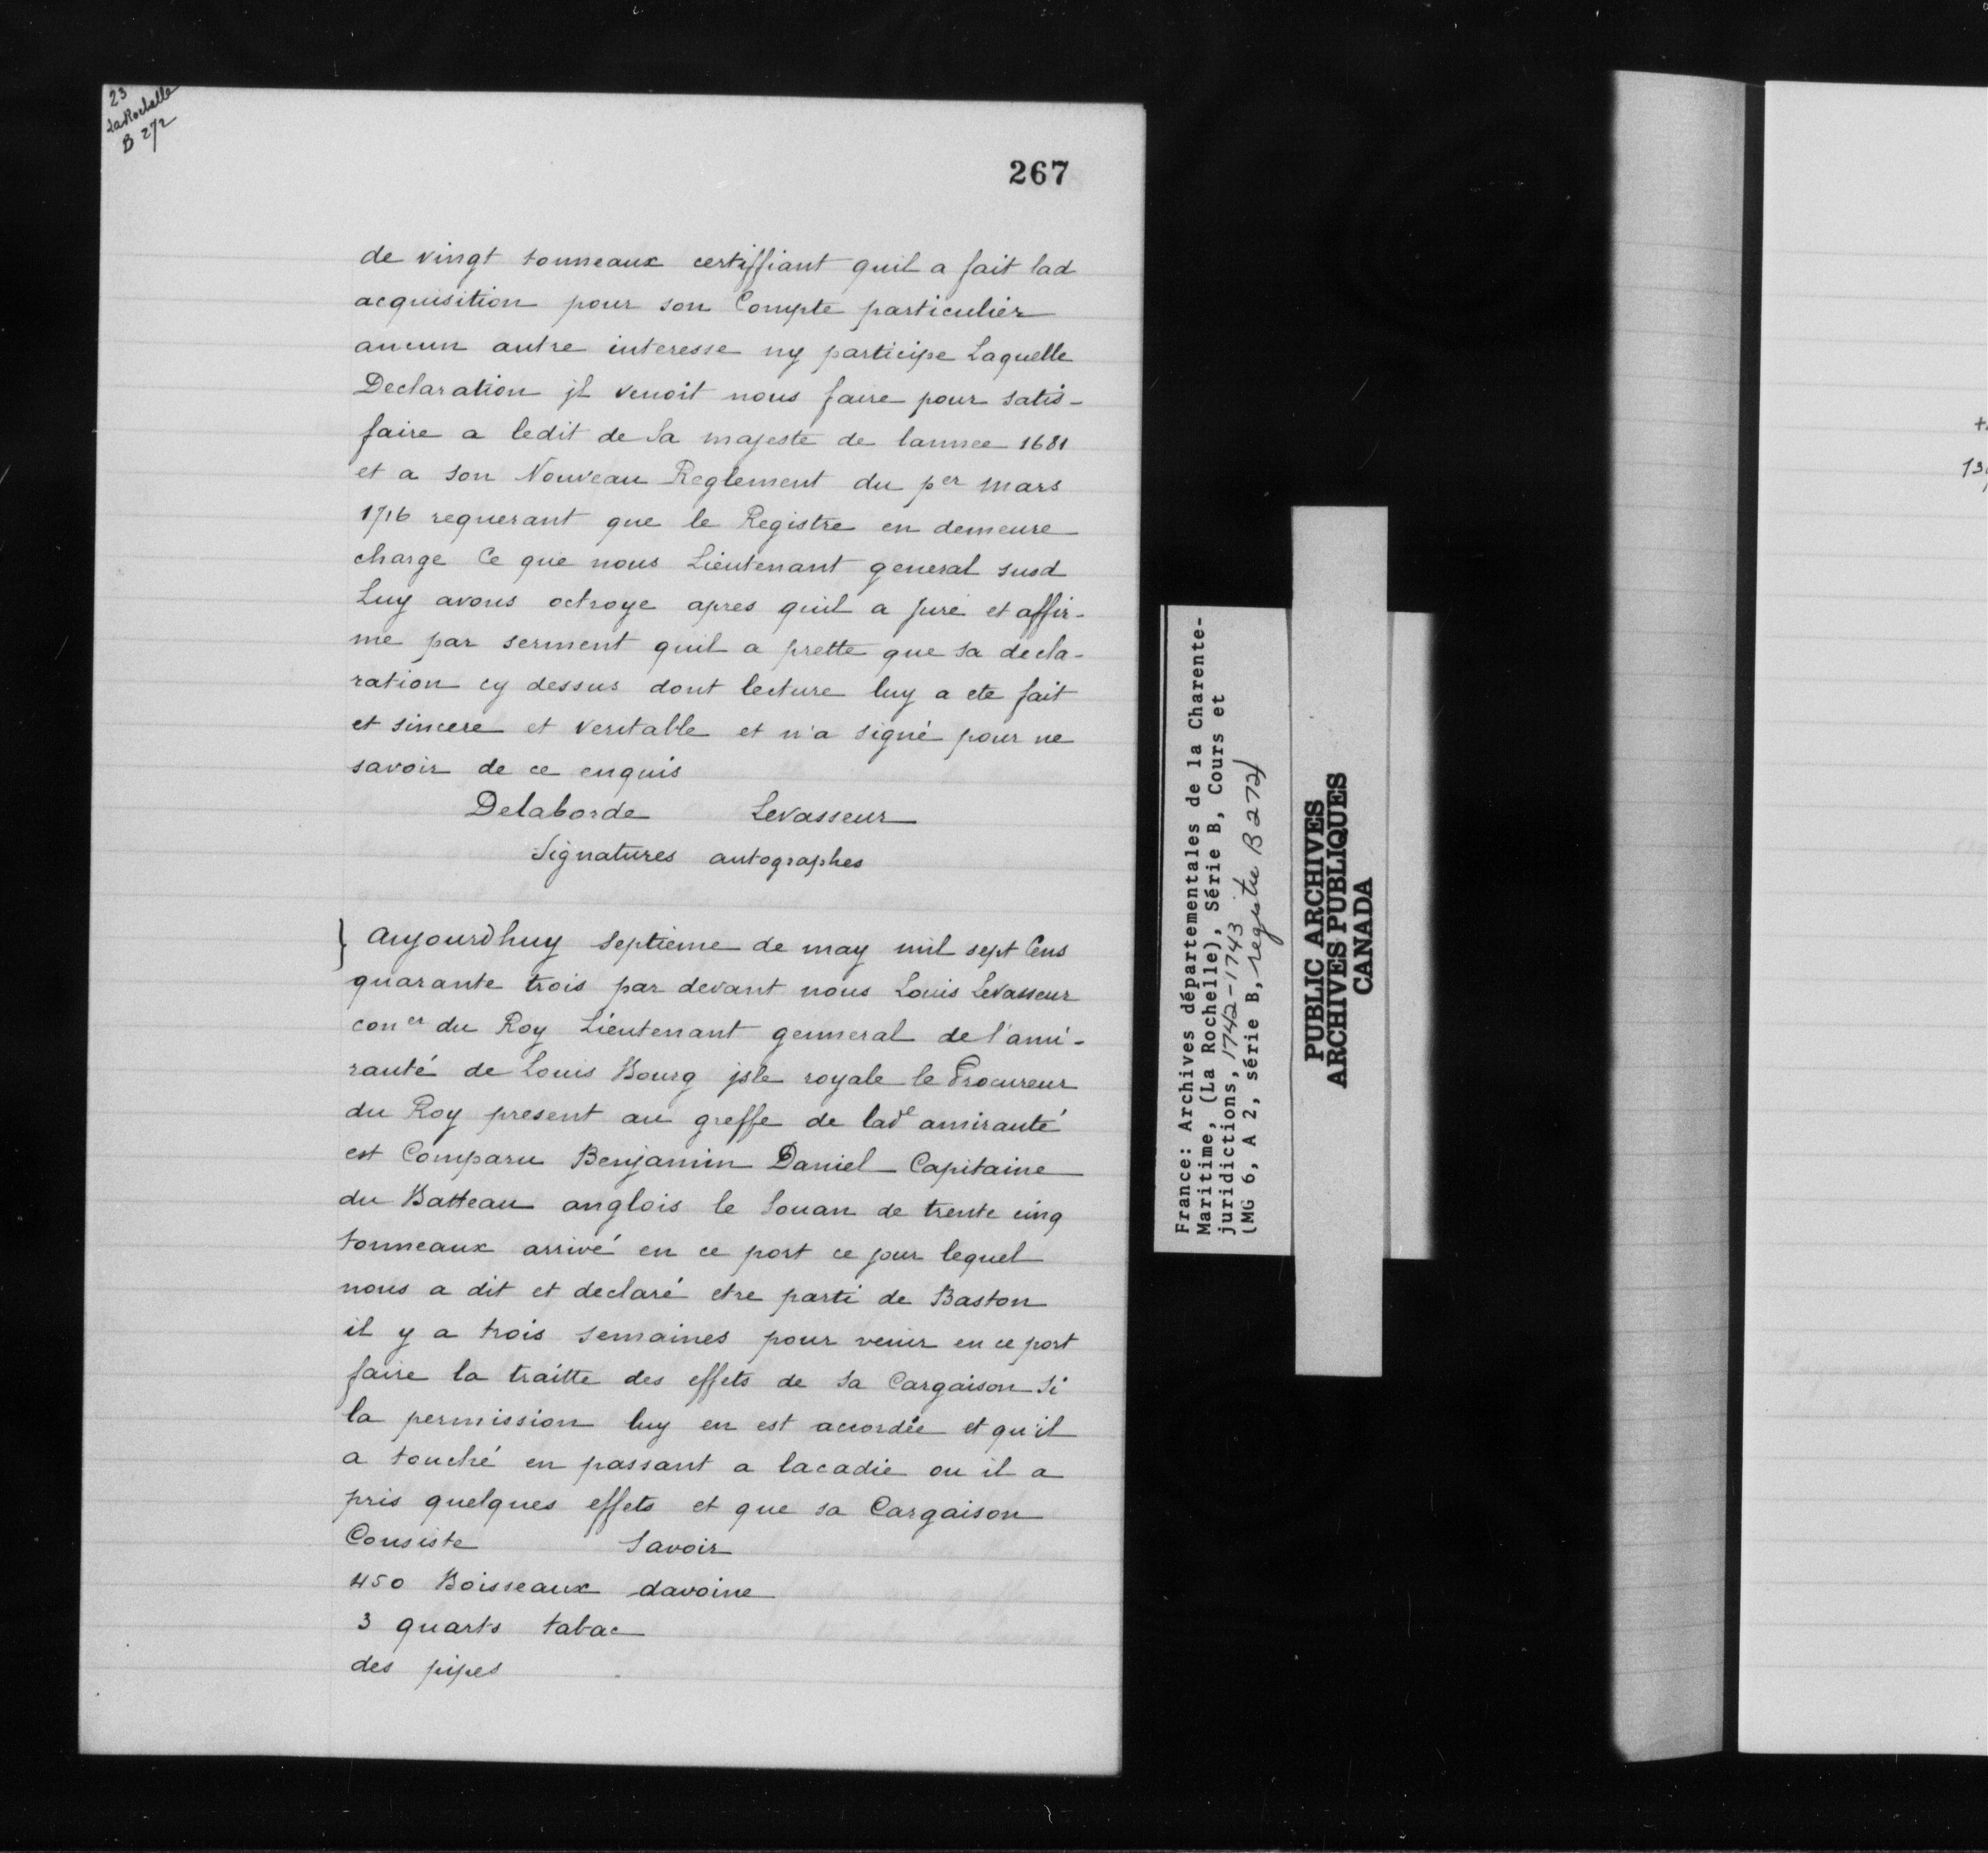 23
LaRochelle
B 272
267
de vingt tonneaux certiffiant quil a fait lad
acquisition pour son Compte particulier
aucun autre interesse ny participe Laquelle
Declaration jl venoit nous faire pour satis-
faire a ledit de Sa majeste de lannee 1681
et a son Nouveau Reglement du per mars
1716 requerant que le Registre en demeure
charge Ce que nous Lieutenant general susd
Luy avons octroye apres quil a juré et affir-
me par serment quil a prette que sa decla-
ration cy dessus dont lecture luy a ete fait
et sincere et veritable et n'a signé pour ne
savoir de ce enquis
Delaborde Levasseur
Signatures autographes
} Aujourdhuy septieme de may mil sept Cens
quarante trois par devant nous Louis Levasseur
coner du Roy Lieutenant genneral de l'ami-
rauté de Louis Bourg jsle royale le Procureur
du Roy present au greffe de lade amirauté
est Comparu Benjamin Daniel Capitaine
du Batteau anglois le Souan de trente cinq
tonneaux arrivé en ce port ce jour lequel
nous a dit et declaré etre parti de Baston
il y a trois semaines pour venir en ce port
faire la traitte des effets de sa Cargaison Si
la permission luy en est accordée et qu'il
a touché en passant a lacadie ou il a
pris quelques effets et que sa Cargaison
Consiste Savoir
450 Boisseaux davoine
3 quarts tabac
des pipes
France: Archives départementales de la Charente-
Maritime, (La Rochelle), Série B, Cours et
juridictions, 1742-1743
(MG 6, A 2, série B, registre B 272)
PUBLIC ARCHIVES
ARCHIVES PUBLIQUES
CANADA